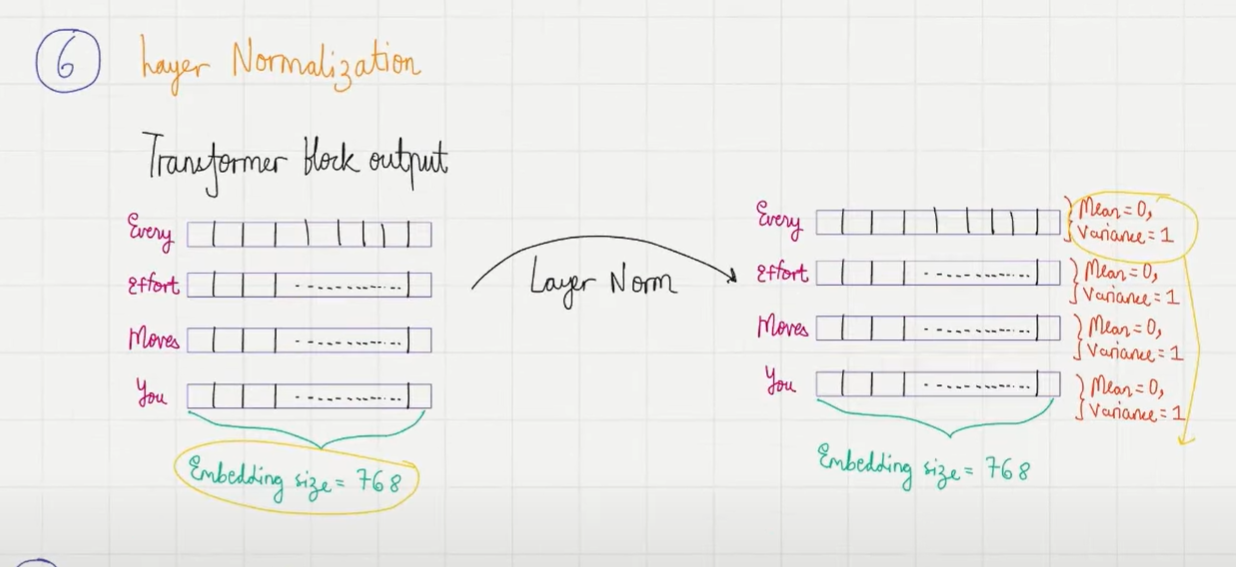 6 Layer Normalization
Transformer block output
Every
Effort
Moves
You
Embedding size = 768
Layer Norm
Every
Mean = 0,
Variance = 1
Effort
Mean = 0,
Variance = 1
Moves
Mean = 0,
Variance = 1
You
Mean = 0,
Variance = 1
Embedding size = 768